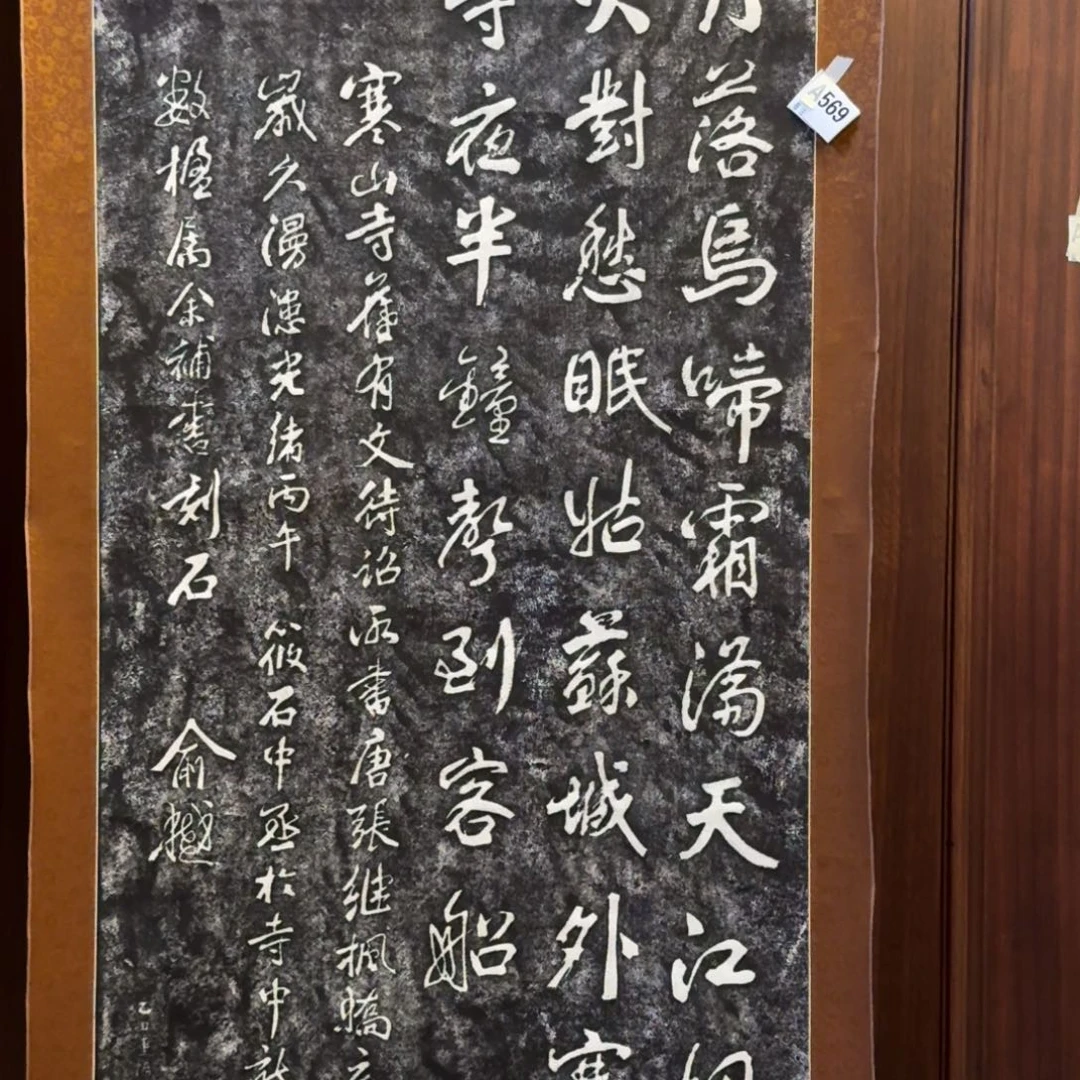 月落烏啼霜滿天江
火對愁眠姑蘇城外寒
寺夜半鐘聲到客船
寒山寺舊有文待詔所書唐張繼楓橋
歲久漫漶光緒丙午筱石中丞於寺中新
數楹属余補書刻石 俞樾
A569